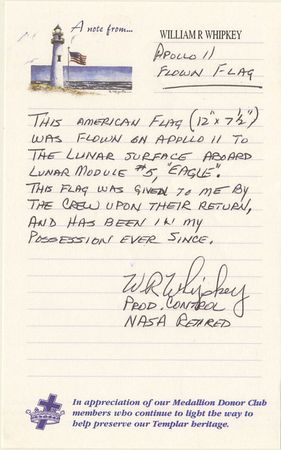 A note from...
WILLIAM R WHIPKEY
APOLLO 11
FLOWN FLAG
THIS AMERICAN FLAG (12" X 7 1/2")
WAS FLOWN ON APOLLO 11 TO
THE LUNAR SURFACE ABOARD
LUNAR MODULE #5, "EAGLE".
THIS FLAG WAS GIVEN TO ME BY
THE CREW UPON THEIR RETURN,
AND HAS BEEN IN MY
POSSESSION EVER SINCE.
W R Whipkey
PROD. CONTROL
NASA RETIRED
In appreciation of our Medallion Donor Club
members who continue to light the way to
help preserve our Templar heritage.